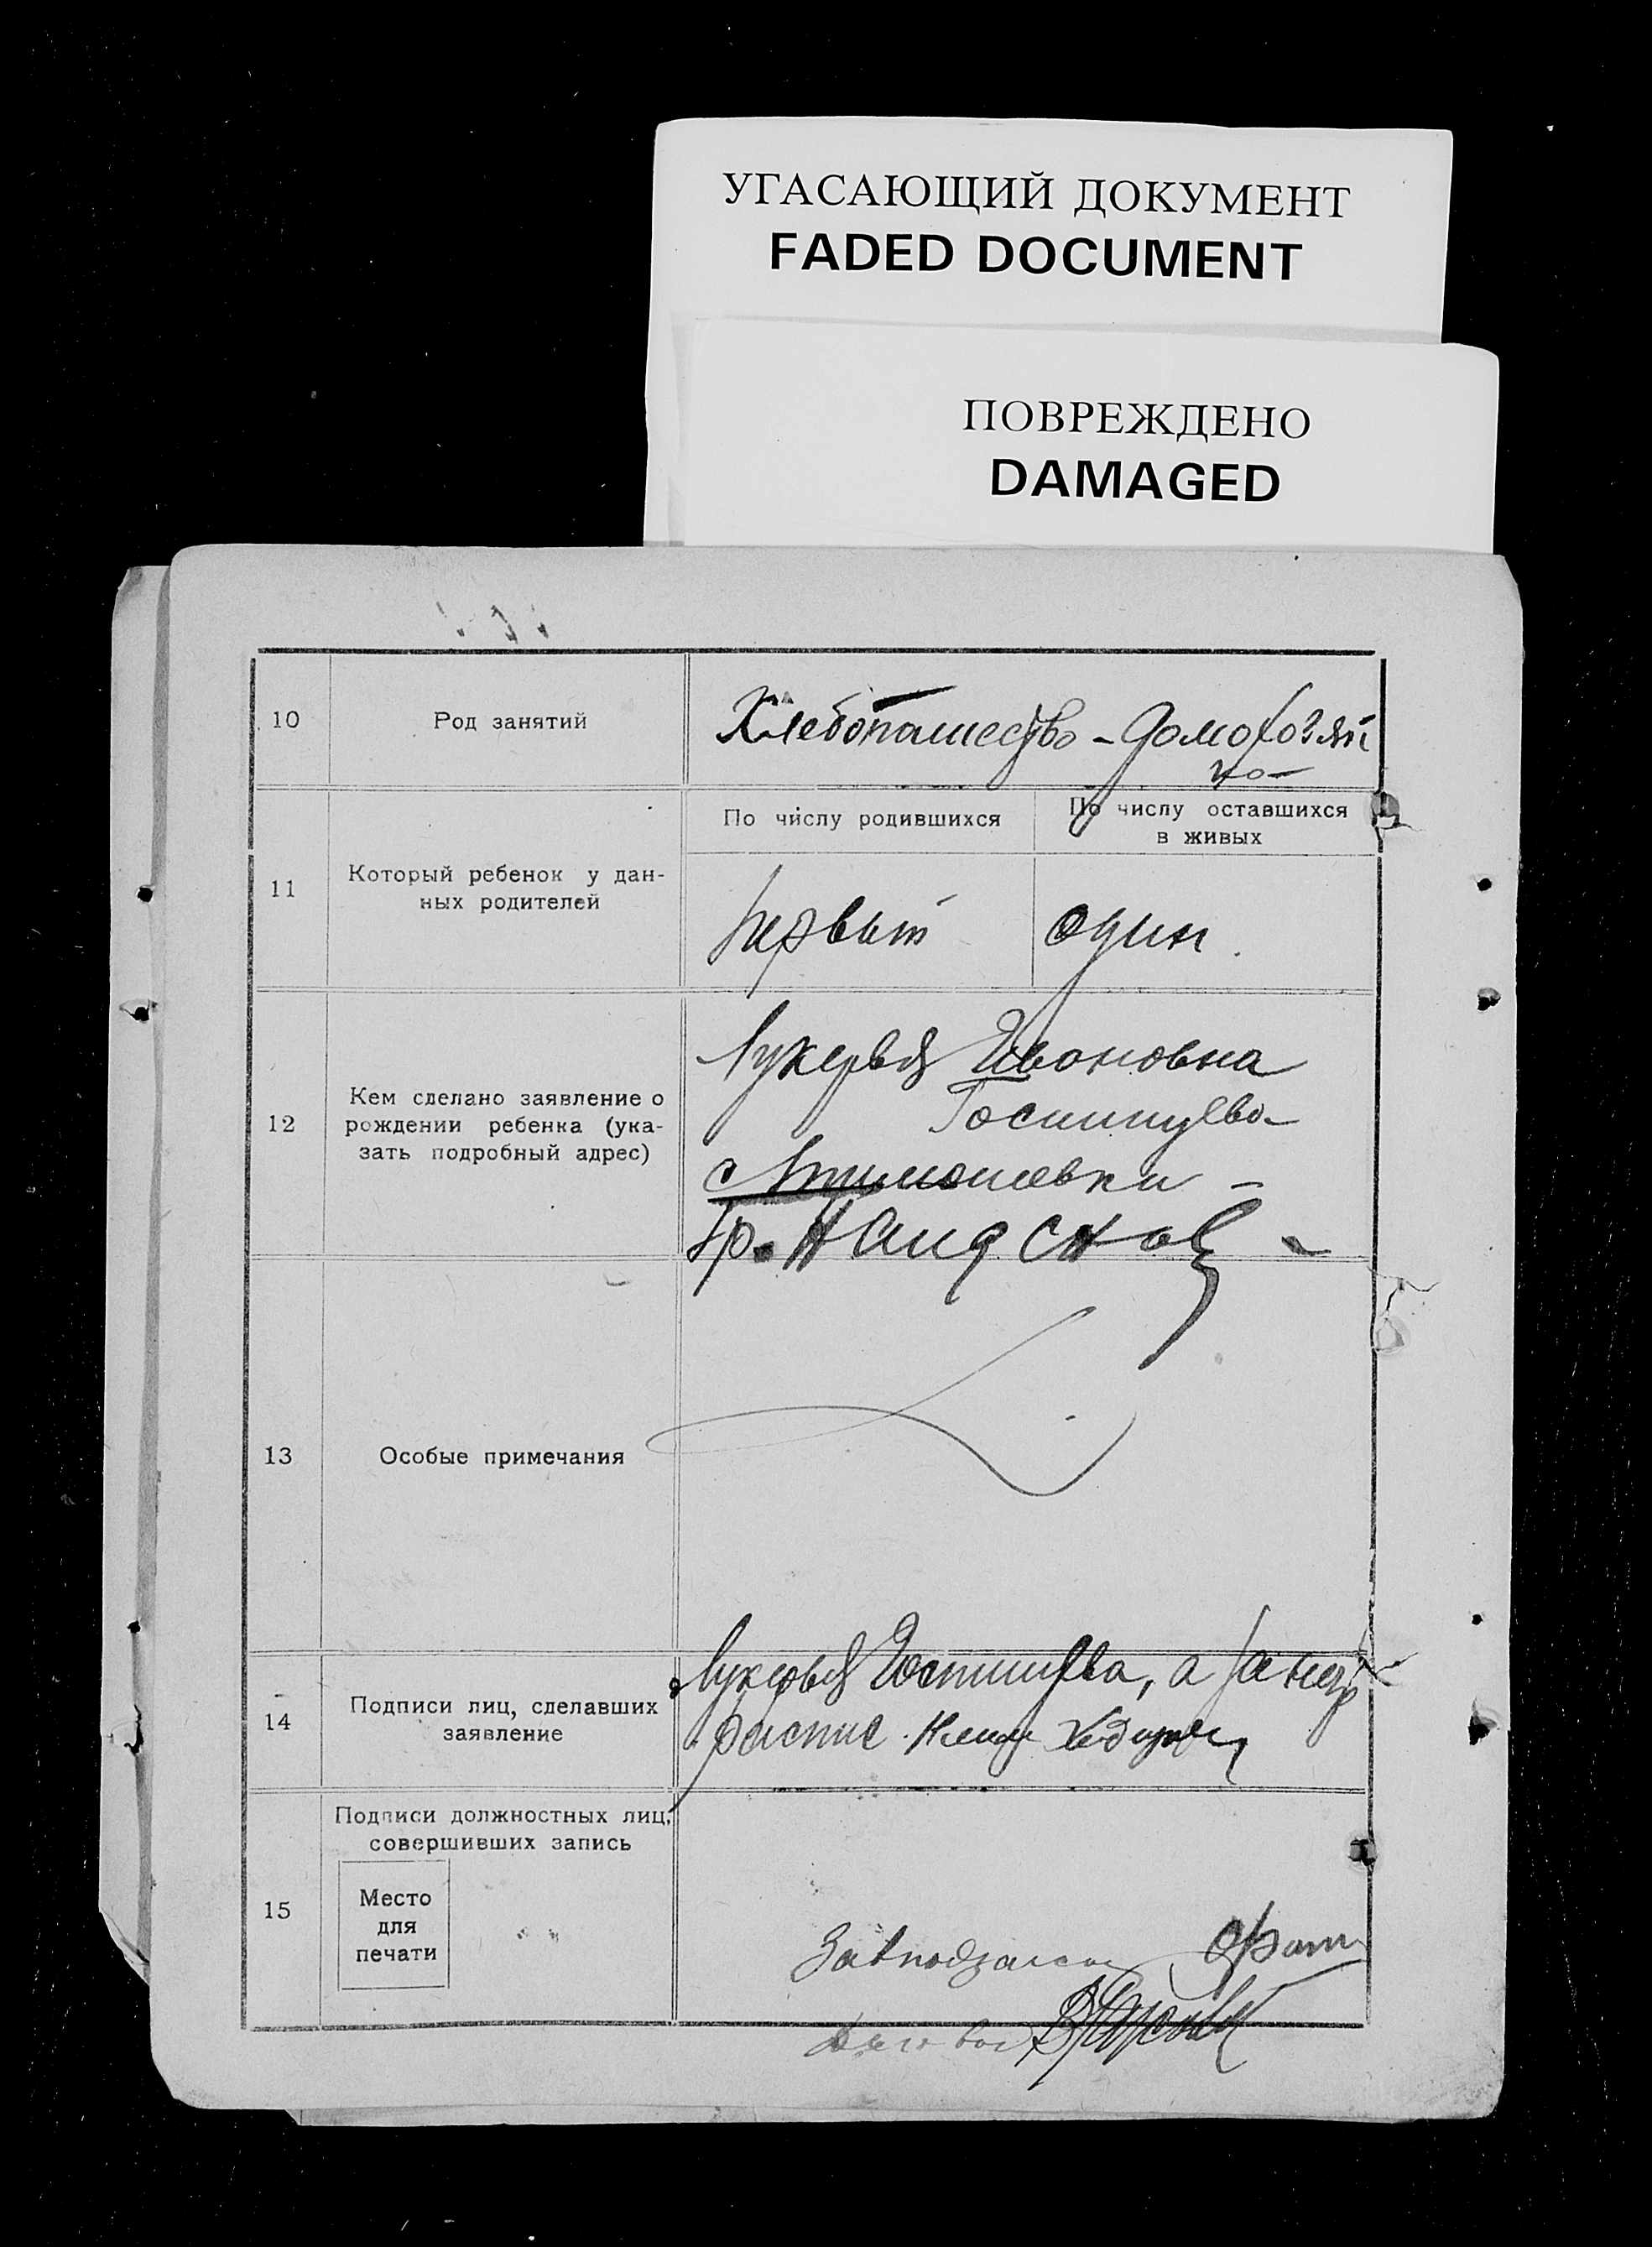 УГАСАЮЩИЙ ДОКУМЕНТ
FADED DOCUMENT
ПОВРЕЖДЕНО
DAMAGED
10
Род занятий
Хлебопашество - домохозяй
ка
11
Который ребенок у дан-
ных родителей
По числу родившихся
По числу оставшихся
в живых
Первый
один
12
Кем сделано заявление о
рождении ребенка (ука-
зать подробный адрес)
Лукерья Ивановна
с
Гр.
13
Особые примечания
14
Подписи лиц, сделавших
заявление
Лукерья а за негр
распис
15
Подписи должностных лиц,
совершивших запись
Место
для
печати